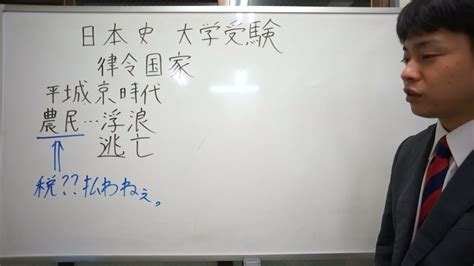 日本史 大学受験
律令国家
平城京時代
農民…浮浪
逃亡
税??払わねぇ。